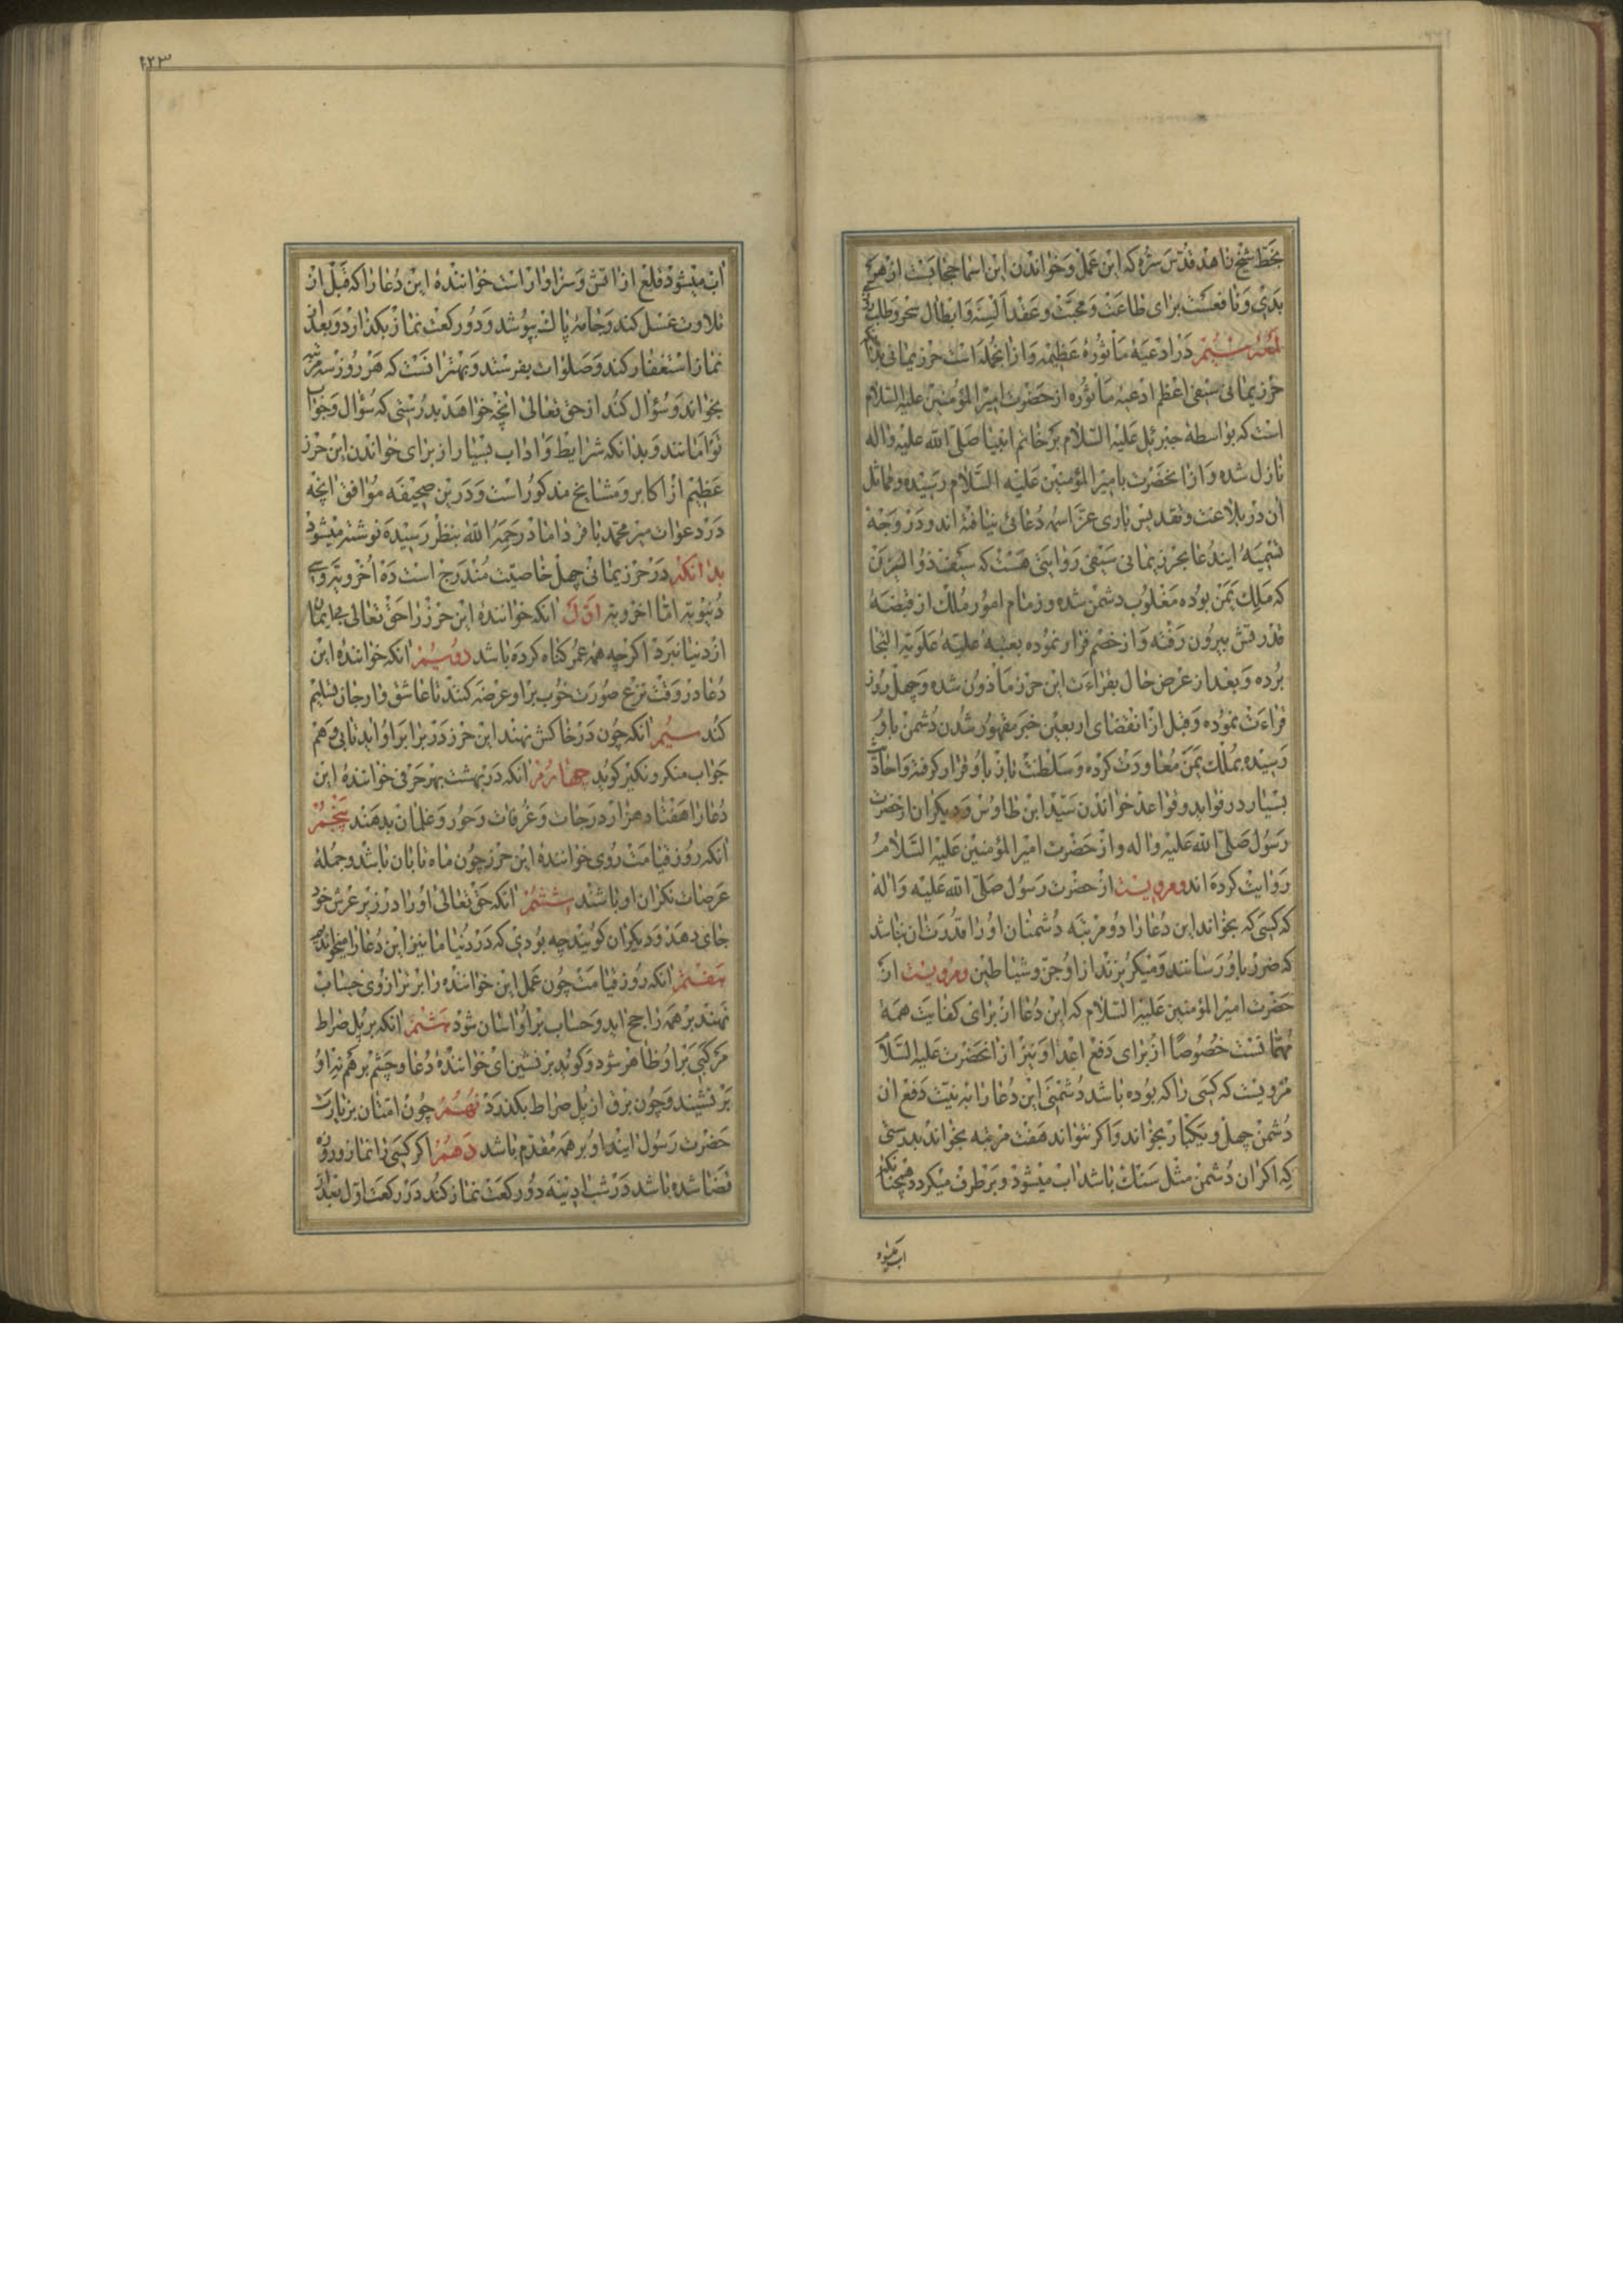 بخط شیخ زاهد قدس سره که این عمل و خواندن این اسما حجابیست از هر
بدی و نافعست برای طاعت و محبت و عقد السنه و ابطال سحر و طلب
لمعه سیم در ادعیه ماثوره عظیمه و ازانجمله است حرز یمانی بدانکه
حرز یمانی سیفی اعظم ادعیه ماثوره از حضرت امیر المؤمنین علیه السلام
است که بواسطه جبرئیل علیه السلام بر خاتم انبیا صلی الله علیه واله
نازل شده و از انحضرت بامیر المؤمنین علیه السلام رسیده و مماثل
آن در بلاغت و تقدیس باری عز اسمه دعائی نیافته اند و در وجه
تسمیه ایندعا بحرز یمانی سیفی روایتی هست که سیف ذو الیزن
که ملک یمن بوده مغلوب دشمن شده و زمام امور ملک از قبضه
قدرتش بیرون رفته و از خصم فرار نموده بعتبه علیه علویه التجا
برده و بعد از عرض حال بقراءت این حرز ماذون شده و چهل روز
قراءت نموده و قبل از انقضای اربعین خبر مقهور شدن دشمن باو
رسیده بملک یمن معاودت کرده و سلطنت باز باو قرار گرفته و احادیث
بسیار در فواید و قواعد خواندن سید ابن طاوس و دیگران از حضرت
رسول صلی الله علیه واله و از حضرت امیر المؤمنین علیه السلام
روایت کرده اند و مرویست از حضرت رسول صلی الله علیه واله
که کسی که بخواند این دعا را دو مرتبه دشمنان او را قدرت ان نباشد
که ضرر باو رسانند و میگریزند از او جن و شیاطین و مرویست از
حضرت امیر المؤمنین علیه السلام که این دعا از برای کفایت همه
مهماتست خصوصا از برای دفع اعدا و نیز از انحضرت علیه السلام
مرویست که کسی را که بوده باشد دشمنی این دعا را به نیت دفع ان
دشمن چهل و یکبار بخواند و اگر نتواند هفت مرتبه بخواند بدرستی
که اگر ان دشمن مثل سنک باشد اب میشود و برطرف میگردد همچنانکه
اب میشود
۲۲۳
اب میشود قلع از اتش و سزاوار است خواننده این دعا را که قبل از
تلاوت غسل کند و جامه پاک بپوشد و دو رکعت نماز بکذارد و بعد از
نماز استغفار کند و صلوات بفرستد و بهتر انست که هر روز سه مرتبه
بخواند و سؤال کند از حق تعالی انچه خواهد بدرستی که سؤال و جواب
توامانند و بدانکه شرایط و اداب بسیار از برای خواندن این حرز
عظیم از اکابر و مشایخ مذکور است و در این صحیفه موافق انچه
در دعوات میر محمد باقر داماد رحمه الله بنظر رسیده نوشته میشود
بدانکه در حرز یمانی چهل خاصیت مندرج است ده اخرویه و سی
دنیویه اما اخرویه اول انکه خواننده این حرز را حق تعالی بی ایمان
از دنیا نبرد اگر چه همه عمر کناه کرده باشد دویم انکه خواننده این
دعا در وقت نزع صورت خوب بر او عرضه کنند تا عاشق وار جان تسلیم
کند سیم انکه چون در خاکش نهند این حرز در برابر او اید تا بی وهم
جواب منکر و نکیر کوید چهارم انکه در بهشت بهر حرفی خواننده این
دعا را هفتاد هزار درجات و غرفات و حور و غلمان بدهند پنجم
انکه روز قیامت روی خواننده این حرز چون ماه تابان باشد و جمله
عرصات نکران او باشند ششم انکه حق تعالی او را در زیر عرش خود
جای دهد و دیکران کویند چه بودی که در دنیا ما نیز این دعا را میخواندیم
هفتم انکه روز قیامت چون عمل این خواننده را بر ترازوی حساب
نهند بر همه راجح اید و حساب بر او اسان شود هشتم انکه بر پل صراط
مرکبی بر او ظاهر شود و کوید بر نشین ای خواننده دعا و چشم بر هم نه او
بر نشیند و چون برق از پل صراط بکذرد نهم چون امتان بزیارت
حضرت رسول ایند او بر همه مقدم باشد دهم اگر کسی را نماز و روزه
قضا شده باشد در شب ادینه دو رکعت نماز کند در رکعت اول بعد از